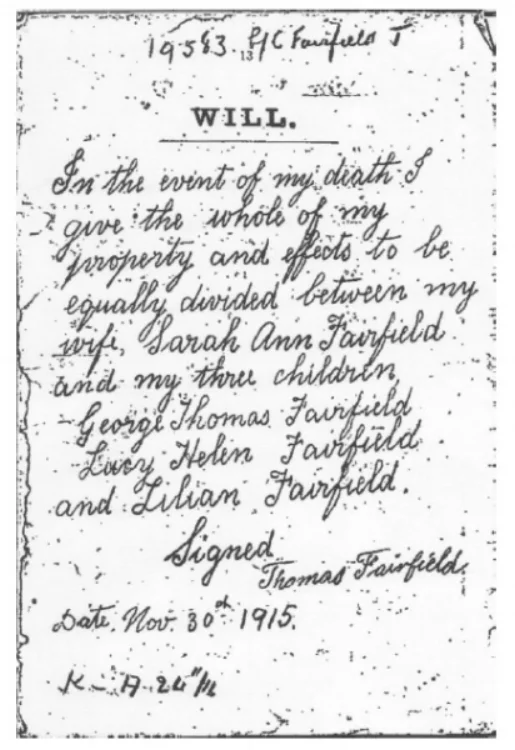 19583 L/C Fairfield T
13
WILL.
In the event of my death I
give the whole of my
property and effects to be
equally divided between my
wife, Sarah Ann Fairfield
and my three children
George Thomas Fairfield
Lucy Helen Fairfield
and Lilian Fairfield.
Signed
Thomas Fairfield.
Date. Nov. 30th 1915.